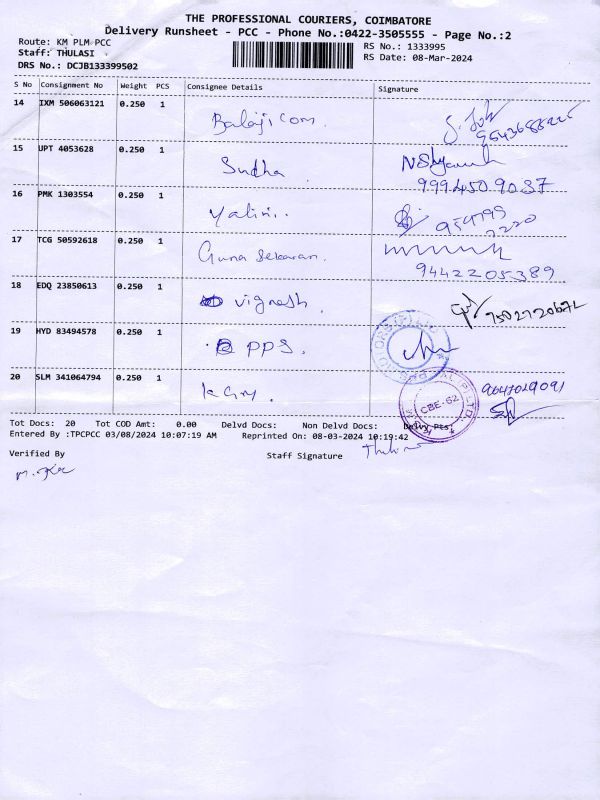 THE PROFESSIONAL COURIERS, COIMBATORE
Delivery Runsheet - PCC - Phone No.:0422-3505555 - Page No.:2
Route: KM PLM PCC
RS No.: 1333995
Staff: THULASI
RS Date: 08-Mar-2024
DRS No.: DCJB133399502
S No Consignment No Weight PCS Consignee Details Signature
14 IXM 506063121 0.250 1 Balaji com.
15 UPT 4053628 0.250 1 Sudha
9994509037
16 PMK 1303554 0.250 1 Yalini..
17 TCG 50592618 0.250 1 Guna Sekaran.
9442205389
18 EDQ 23850613 0.250 1 vignesh.
19 HYD 83494578 0.250 1 PPS.
20 SLM 341064794 0.250 1
CBE-62
Tot Docs: 20 Tot COD Amt: 0.00 Delvd Docs: Non Delvd Docs: Delvy Pts:
Entered By :TPCPCC 03/08/2024 10:07:19 AM Reprinted On: 08-03-2024 10:19:42
Verified By
Staff Signature